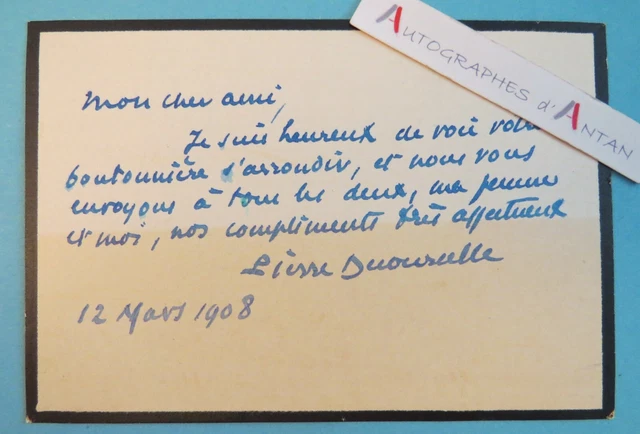 AUTOGRAPHES d'ANTAN
Mon cher ami,
Je suis heureux de voir votre
boutonnière s'arrondir, et nous vous
envoyons à tous les deux, ma femme
et moi, nos compliments très affectueux
Pierre Decourcelle
12 Mars 1908